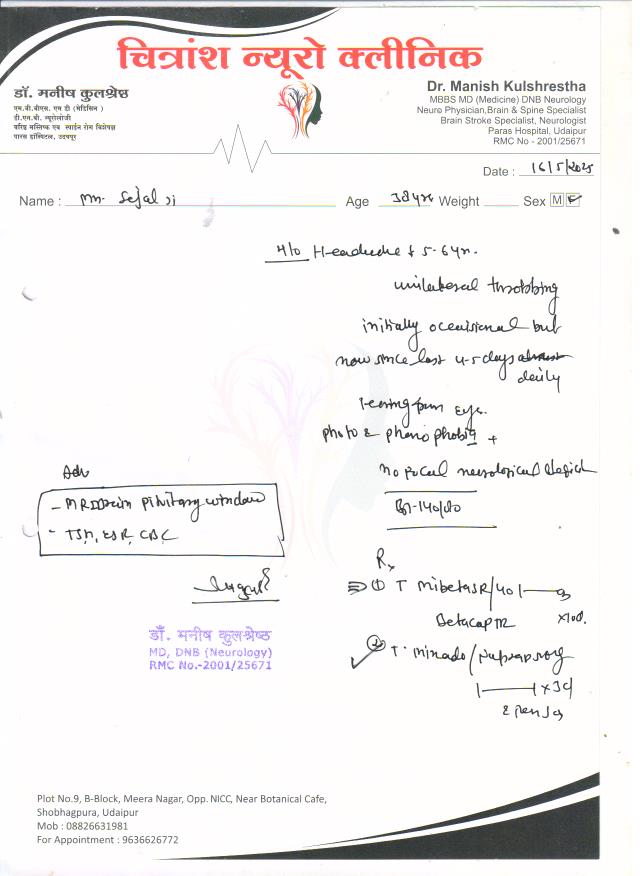 चित्रांश न्यूरो क्लीनिक
डॉ. मनीष कुलश्रेष्ठ
एम.बी.बीएस. एम डी (मेडिसिन)
डी.एन.बी. न्यूरोलोजी
वरिष्ठ मस्तिष्क एवं स्पाईन रोग विशेषज्ञ
पारस हॉस्पिटल, उदयपुर
Dr. Manish Kulshrestha
MBBS MD (Medicine) DNB Neurology
Neure Physician,Brain & Spine Specialist
Brain Stroke Specialist, Neurologist
Paras Hospital, Udaipur
RMC No - 2001/25671
Date : 16/5/2025
Name : Sejal ji Age 38 yr Weight Sex M F
H/o Headache 5-6 yr.
unilateral throbbing
initially occasional but
now since last 4-5 days almost
daily
tearing from eye.
photo & phonophobia +
no focal neurological deficit
BP-140/80
Adv
- MRI Brain Pituitary window
- TSH, ESR, CBC
Rx
① T 40
Betacap TR
② T.
डॉ. मनीष कुलश्रेष्ठ
MD, DNB (Neurology)
RMC No.-2001/25671
Plot No.9, B-Block, Meera Nagar, Opp. NICC, Near Botanical Cafe,
Shobhagpura, Udaipur
Mob : 08826631981
For Appointment : 9636626772